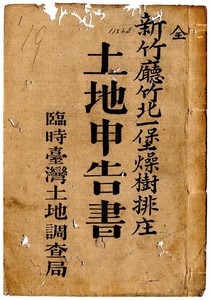 全
新竹廳竹北一堡燥樹排庄
土地申告書
臨時臺灣土地調查局